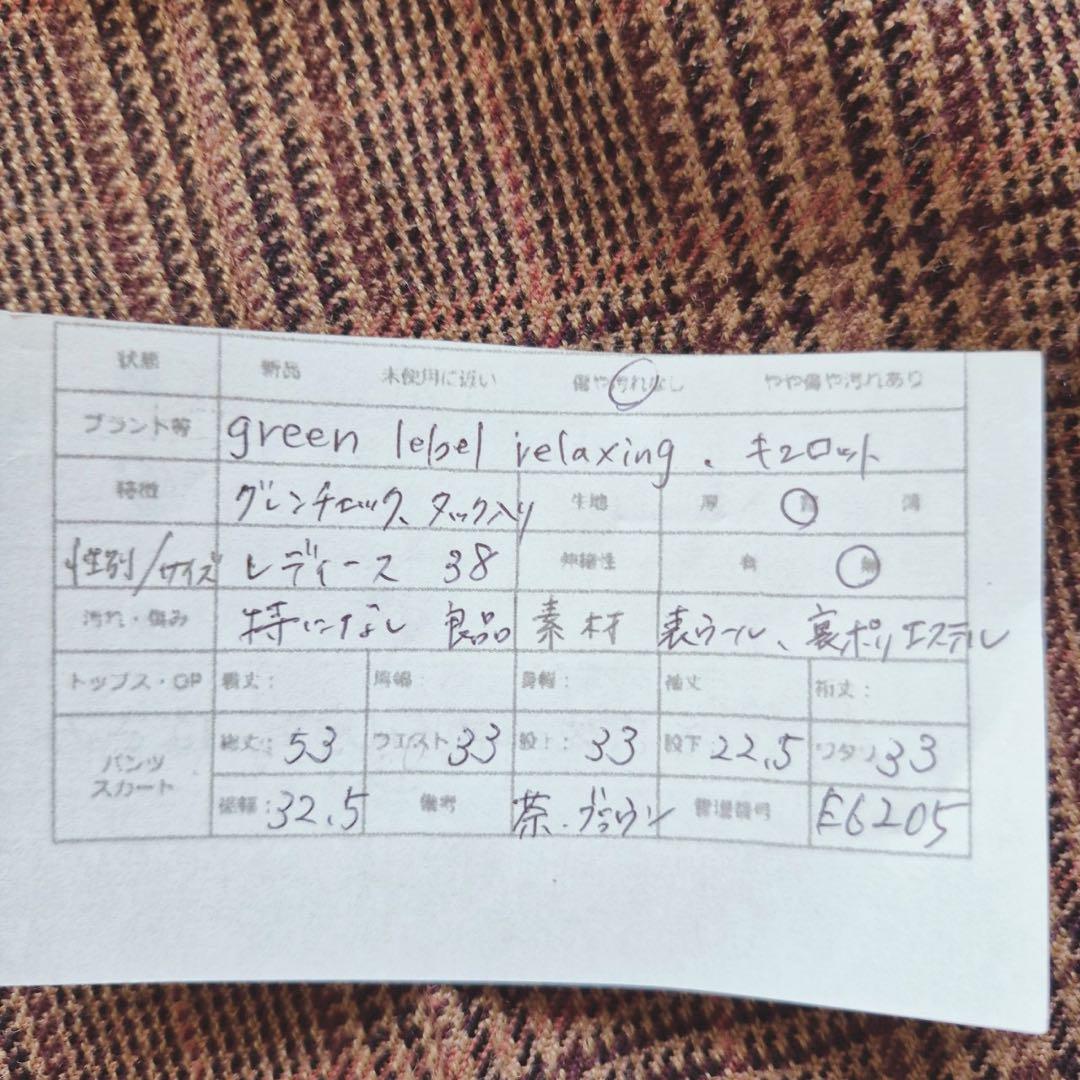 状態 新品 未使用に近い 傷や汚れなし やや傷や汚れあり
ブランド等 green lebel relaxing. キュロット
特徴 グレンチェック、タック入り 生地 厚 普 薄
性別/サイズ レディース 38 伸縮性 有 無
汚れ・傷み 特になし 良品 素材 表ウール、裏ポリエステル
トップス・OP 着丈： 肩幅： 身幅： 袖丈 裄丈：
パンツ スカート 総丈：53 ウエスト33 股上：33 股下22.5 ワタリ33
裾幅：32.5 備考 茶.ブラウン 管理番号 E6205